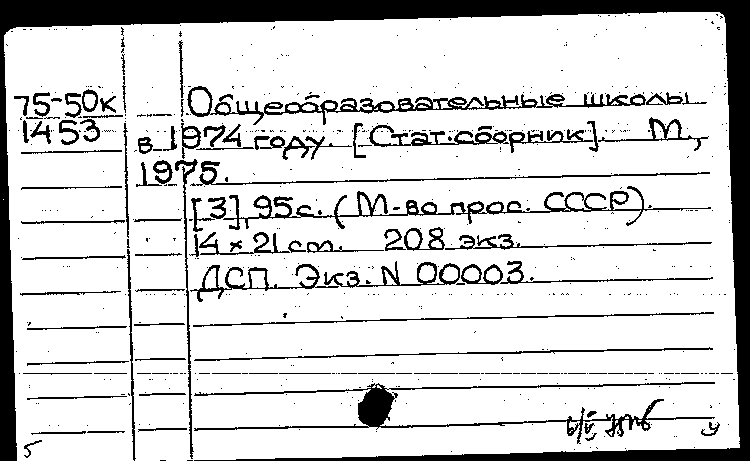 75-50к Общеобразовательные школы
1453 в 1974 году. [Стат.сборник]. М.,
1975.
[3], 95с. (М-во прос. СССР).
14 × 21 cm. 208 экз.
ДСП. Экз. N 00003.
5